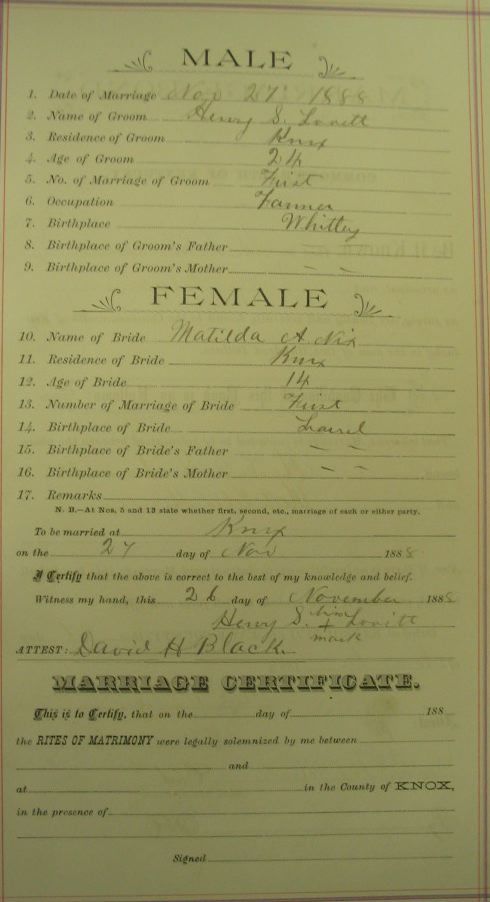 MALE
1. Date of Marriage Nov 27 1888
2. Name of Groom Henry S. Lovitt
3. Residence of Groom Knox
4. Age of Groom 24
5. No. of Marriage of Groom First
6. Occupation Farmer
7. Birthplace Whitley
8. Birthplace of Groom's Father
9. Birthplace of Groom's Mother — —
FEMALE
10. Name of Bride Matilda A. Nix
11. Residence of Bride Knox
12. Age of Bride 14
13. Number of Marriage of Bride First
14. Birthplace of Bride Laurel
15. Birthplace of Bride's Father — —
16. Birthplace of Bride's Mother — —
17. Remarks
N. B.—At Nos. 5 and 13 state whether first, second, etc., marriage of each or either party.
To be married at Knox
on the 27 day of Nov 1888
I Certify that the above is correct to the best of my knowledge and belief.
Witness my hand, this 26 day of November 1888
Henry S. his + mark Lovitt
ATTEST: David H Black
MARRIAGE CERTIFICATE.
This is to Certify, that on the day of 188
the RITES OF MATRIMONY were legally solemnized by me between
and
at in the County of KNOX,
in the presence of
Signed